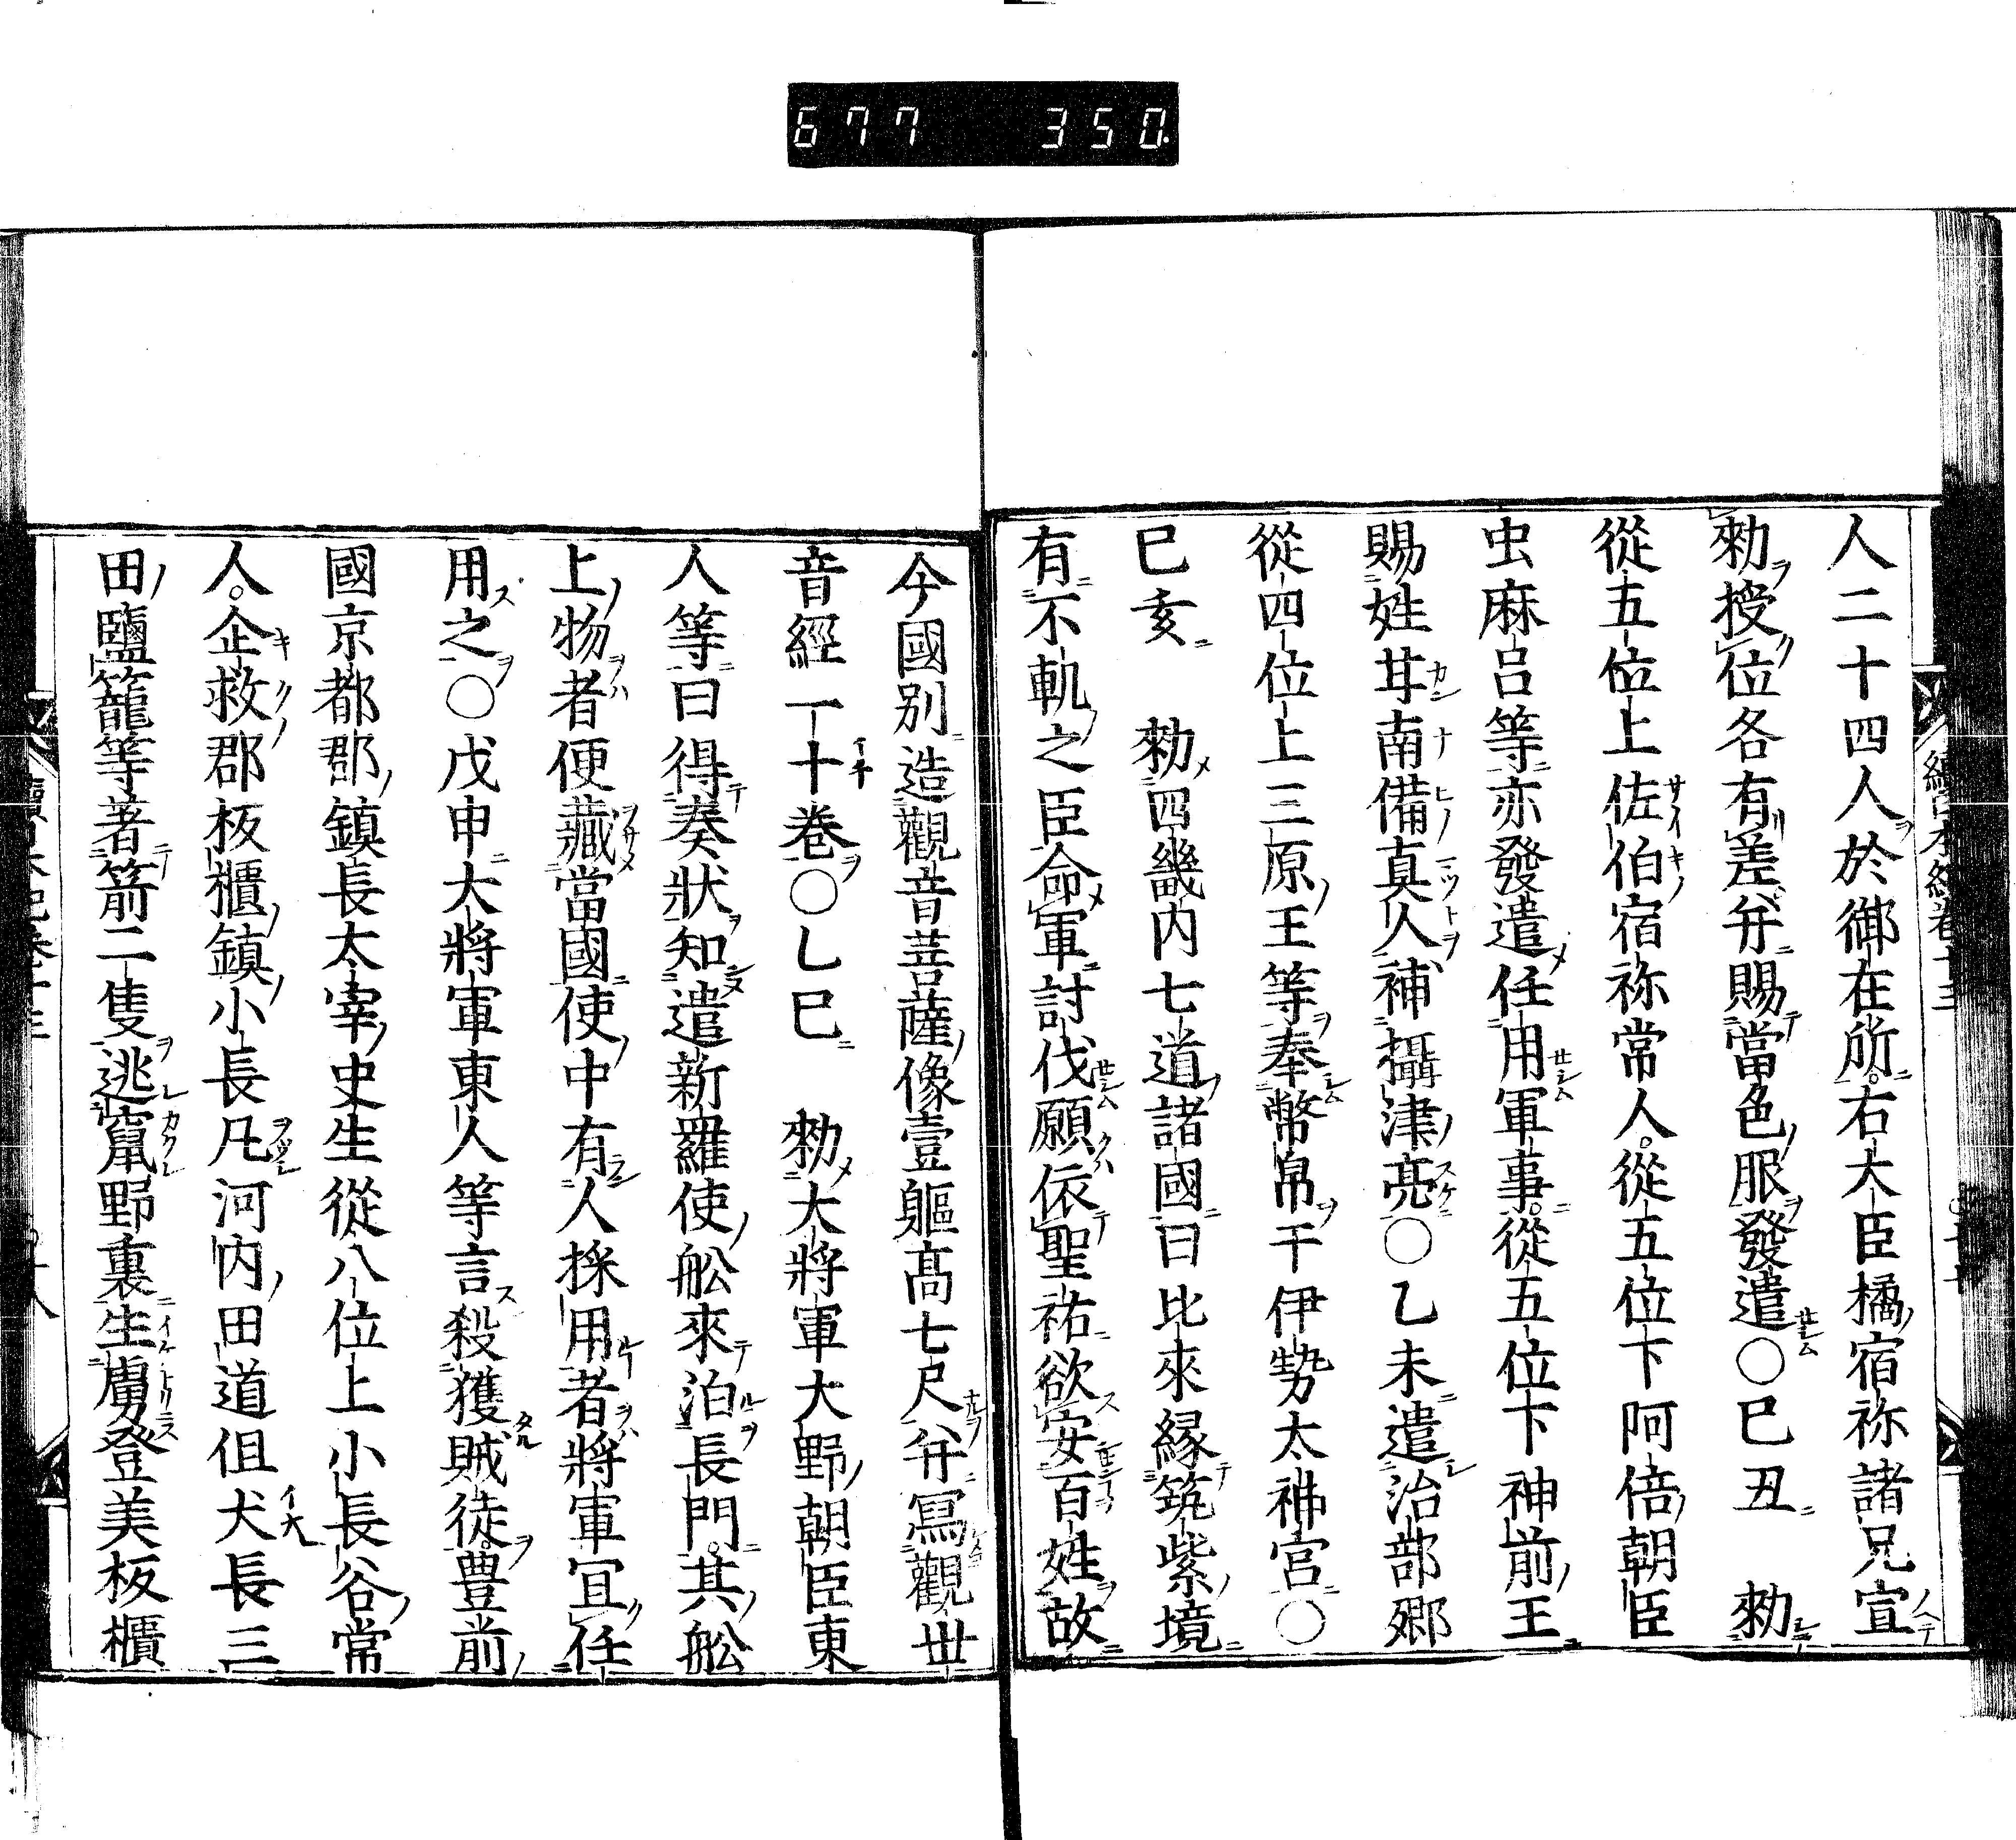 677 350.
人二十四人於御在所右大臣橘宿祢諸兄宣
勑授位各有差幷賜當色服發遣〇巳丑 勑
從五位上佐伯宿祢常人從五位下阿倍朝臣
虫麻呂等亦發遣任用軍事從五位下神前王
賜姓甘南備真人補攝津亮〇乙未遣治部郷
從四位上三原王等奉幣帛于伊勢太神宮〇
巳亥 勑四畿内七道諸國曰比來縁筑紫境
有不軌之臣命軍討伐願依聖祐欲安百姓故
今國別造觀音菩薩像壹軀髙七尺幷冩觀世
音經一十巻〇乚巳 勑大將軍大野朝臣東
人等曰得奏狀知遣新羅使舩來泊長門其舩
上物者便藏當國使中有人採用者將軍冝任
用之〇戊申大將軍東人等言殺獲賊徒豊前
國京都郡鎮長太宰史生從八位上小長谷常
人企救郡板櫃鎮小長凡河内田道但犬長三
田鹽籠等著箭二隻逃竄野裏生虜登美板櫃